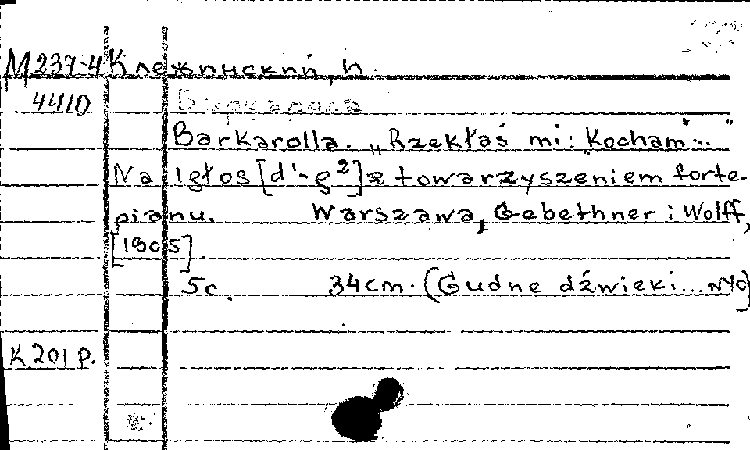 М 237-4 Клежинский, И.
4410 Баркарола
Barkarolla. „Rzekłaś mi: Kocham"...
Na 1 głos [d'-g²] z towarzyszeniem forte-
pianu. Warszawa, Gebethner i Wolff,
[1905].
5 c. 34 cm. (Cudne dźwięki... №10)
К 201 р.